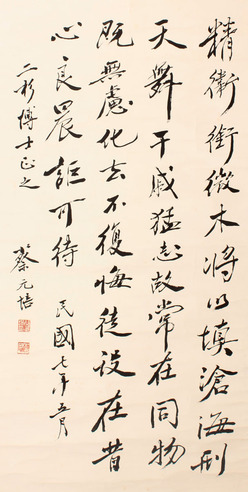 精衛銜微木將以填滄海刑
天舞干戚猛志故常在同物
既無慮化去不復悔徒設在昔
心良晨詎可待 民國七年五月
二彬博士正之
蔡元培